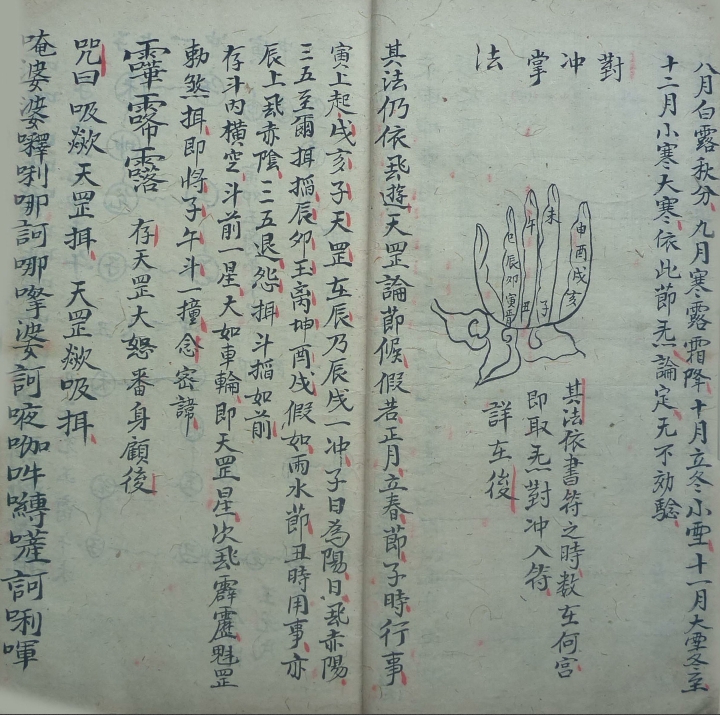 八月白露秋分九月寒露霜降十月立冬小雪十一月大雪冬至
十二月小寒大寒依此節炁論定无不効驗
對冲掌法
申酉戌亥
未
子
午
丑
巳辰卯寅
其法依書符之時数在何宮
即取炁對冲入符
詳在後
其法仍依飛遊天罡論節候假若正月立春節子時行事
寅上起戌亥子天罡在辰乃辰戌一冲子日為陽日飛赤陽
三五至爾揖搯辰夘玉离坤酉戌假如雨水節丑時用事亦
辰上飛赤陰三五退怨揖斗搯如前
存斗内橫空斗前一星大如車輪即天罡星次飛霹靂魁罡
勅煞揖即將子午斗一撞念密諱
存天罡大怒番身顧後
咒曰吸歘天罡揖天罡歘吸揖
唵婆婆㘁唎哪訶哪嚓婆訶㖡咖吽嚩嗟訶唎㖷